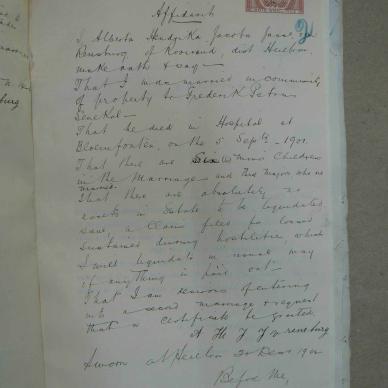 Affidavit
I, Alberta Hendrika Jacoba Janse van
Rensburg of Rooiwal, dist Heilbron,
make oath & say:-
That I was married in community
of property to Frederik Petrus
Senekal -
That he died in Hospital at
Bloemfontein, on the 5 Sept. 1901
That there are Six (6) minor Children
in the Marriage - and
married.
That there are absolutely no
assets in Estate to be liquidated
save, a Claim filed for losses
Sustained during hostilities, which
I will liquidate in usual way
if anything is paid out -
That I am desirous of entering
into a second marriage & request
that a certificate be granted.
A H J J v Rensburg
Sworn at Heilbron 20 Decr 190
Before Me,